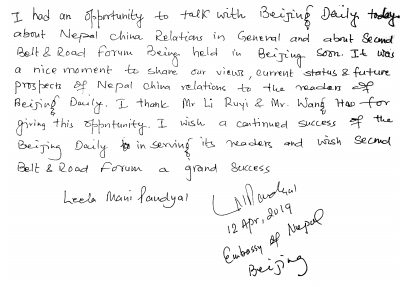 I had an opportunity to talk with Beijing Daily today
about Nepal China Relations in General and about Second
Belt & Road Forum Being held in Beijing soon. It was
a nice moment to share our views, current status & future
prospects of Nepal China relations to the readers of
Beijing Daily. I thank Mr Li Ruyi & Mr. Wang Hao for
giving this opportunity. I wish a continued success of the
Beijing Daily in serving its readers and wish Second
Belt & Road Forum a grand success
Leela Mani Paudyal
LMPaudyal
12 Apr, 2019
Embassy of Nepal
Beijing